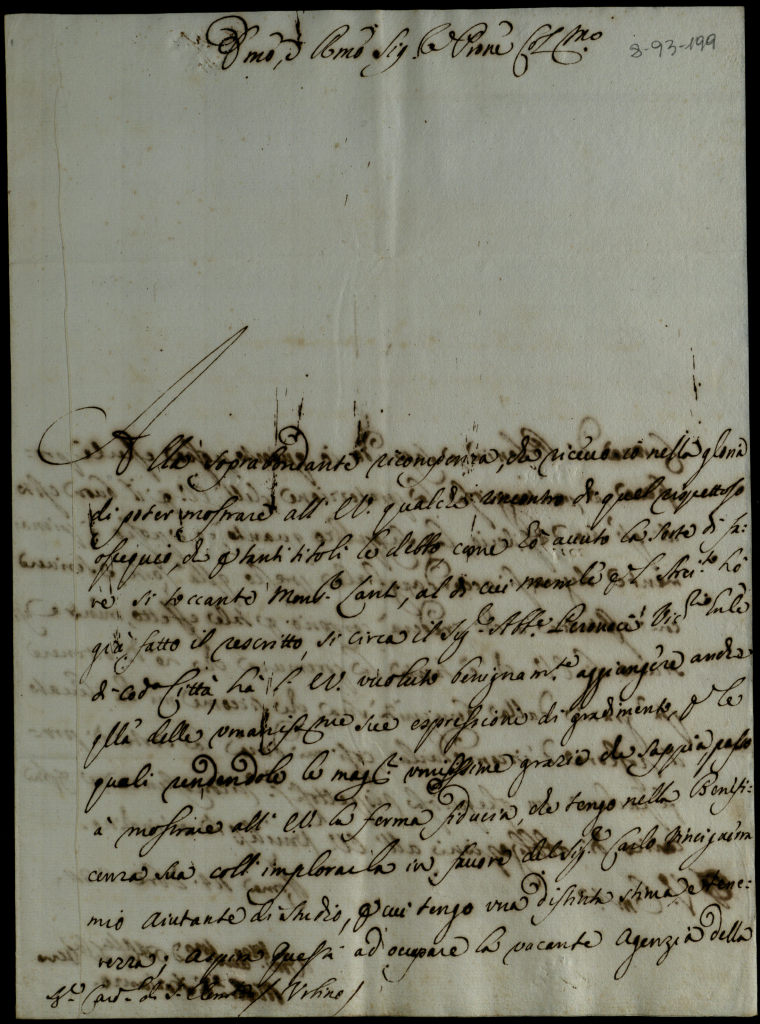 Em̃o, e Rmõ Sig.re Pr̃one Col.mo
8-93-199
Alla soprabondante ricompensa, che ricevo io nella gloria
di poter mostrare all' E.V. qualche rincontro di quel rispettoso
ossequio, che p tanti titoli le debbo, come hò avuto la sorte di fa=
re si toccante Mons.r Santi, al di cui memoriale hò
già fatto il rescritto, si circa il Sig.re Abb.e
di cod.a Città, hà l' E.V. voluto benignam.te aggiungere anche
qlla delle umanissime sue espressioni di gradimento, p le
quali rendendole le mag.ri umilissime grazie che sappia, passo
à mostrare all' E.V. la ferma fiducia, che tengo nella Benefi=
cenza sua coll' implorarla in favore del Sig.r Carlo
mio Aiutante di studio, p cui tengo una distinta stima, e tene=
rezza; Aspira questi ad occupare la vacante Agenzia della
S.r Card. di S. Clemente / Urbino /